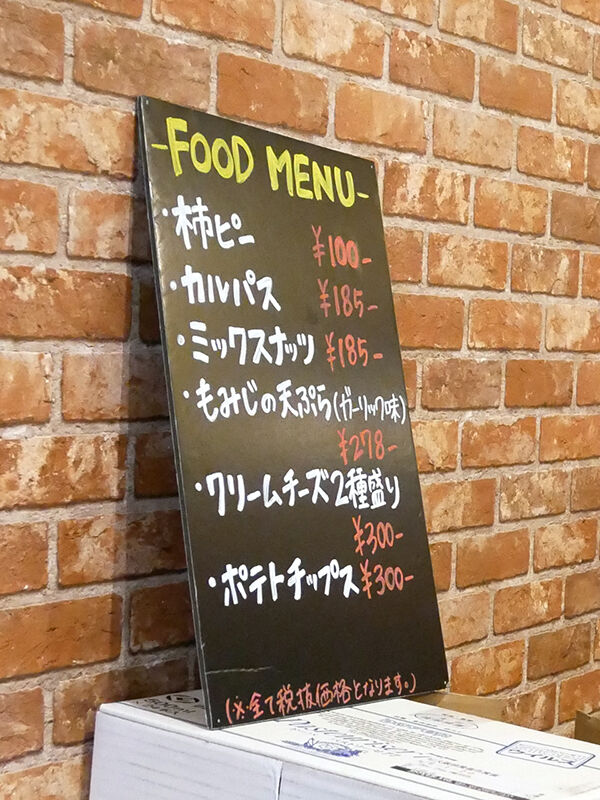 -FOOD MENU-
・柿ピー ¥100-
・カルパス ¥185-
・ミックスナッツ ¥185-
・もみじの天ぷら(ガーリック味)
¥278-
・クリームチーズ2種盛り
¥300-
・ポテトチップス ¥300-
(※全て税抜価格となります。)